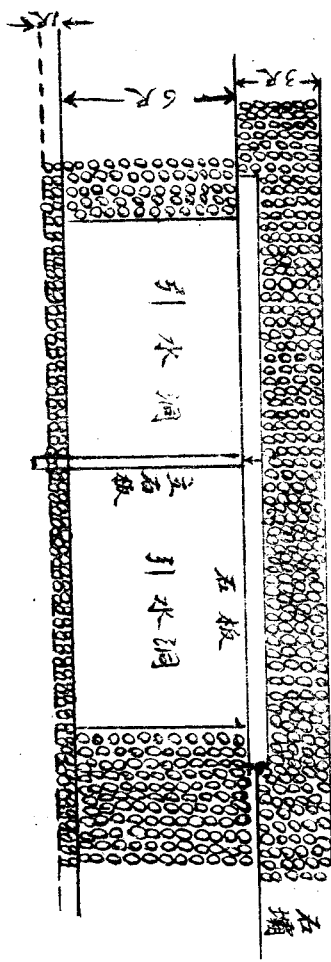 3尺
6尺
尺
引水洞
立石板
石板
引水洞
石